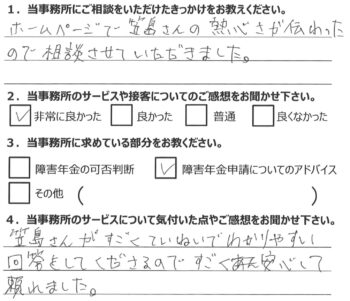 1．当事務所にご相談をいただけたきっかけをお教えください。
ホームページで笠島さんの熱心さが伝わった
ので相談させていただきました。
2．当事務所のサービスや接客についてのご感想をお聞かせ下さい。
☑非常に良かった □良かった □普通 □良くなかった
3．当事務所に求めている部分をお教ください。
□障害年金の可否判断 ☑障害年金申請についてのアドバイス
□その他（ ）
4．当事務所のサービスについて気付いた点やご感想をお聞かせ下さい。
笠島さんがすごくていねいでわかりやすい
回答をしてくださるのですごく安心して
頼れました。